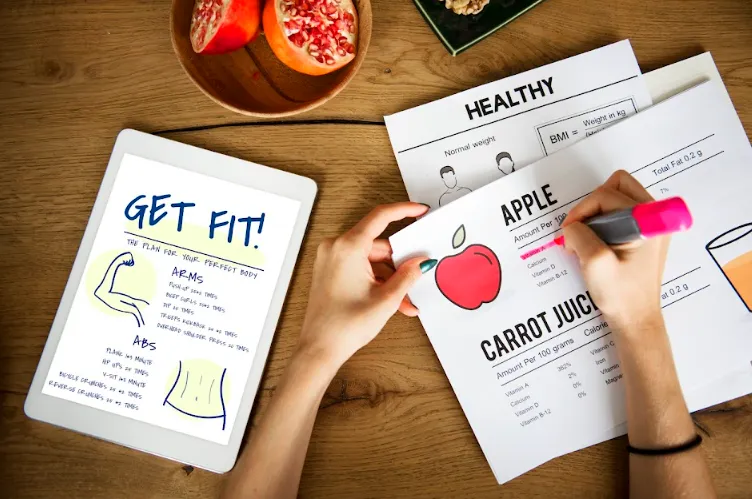 GET FIT!
THE PLAN FOR YOUR PERFECT BODY
ARMS
PUSH-UP 20x2 TIMES
BICEP CURLS 20x2 TIMES
DIP 20 TIMES
TRICEPS KICKBACK 20 x2 TIMES
OVERHEAD SHOULDER PRESS 20 TIMES
ABS
PLANK 1x3 MINUTE
HIP UPS 20 TIMES
V-SIT 1x3 MINUTE
BICYCLE CRUNCHES 20 x2 TIMES
REVERSE CRUNCHES 20 x2 TIMES
HEALTHY
Normal weight
BMI = Weight in kg
APPLE
Amount Per 100
Total Fat 0.2 g
Calcium
Vitamin D
Vitamin B-12
CARROT JUIC
Amount Per 100 grams
Calories
0.2 g
Vitamin A 382%
Calcium 2%
Vitamin D 0%
Vitamin B-12 0%
Vitamin C
Iron
Magne